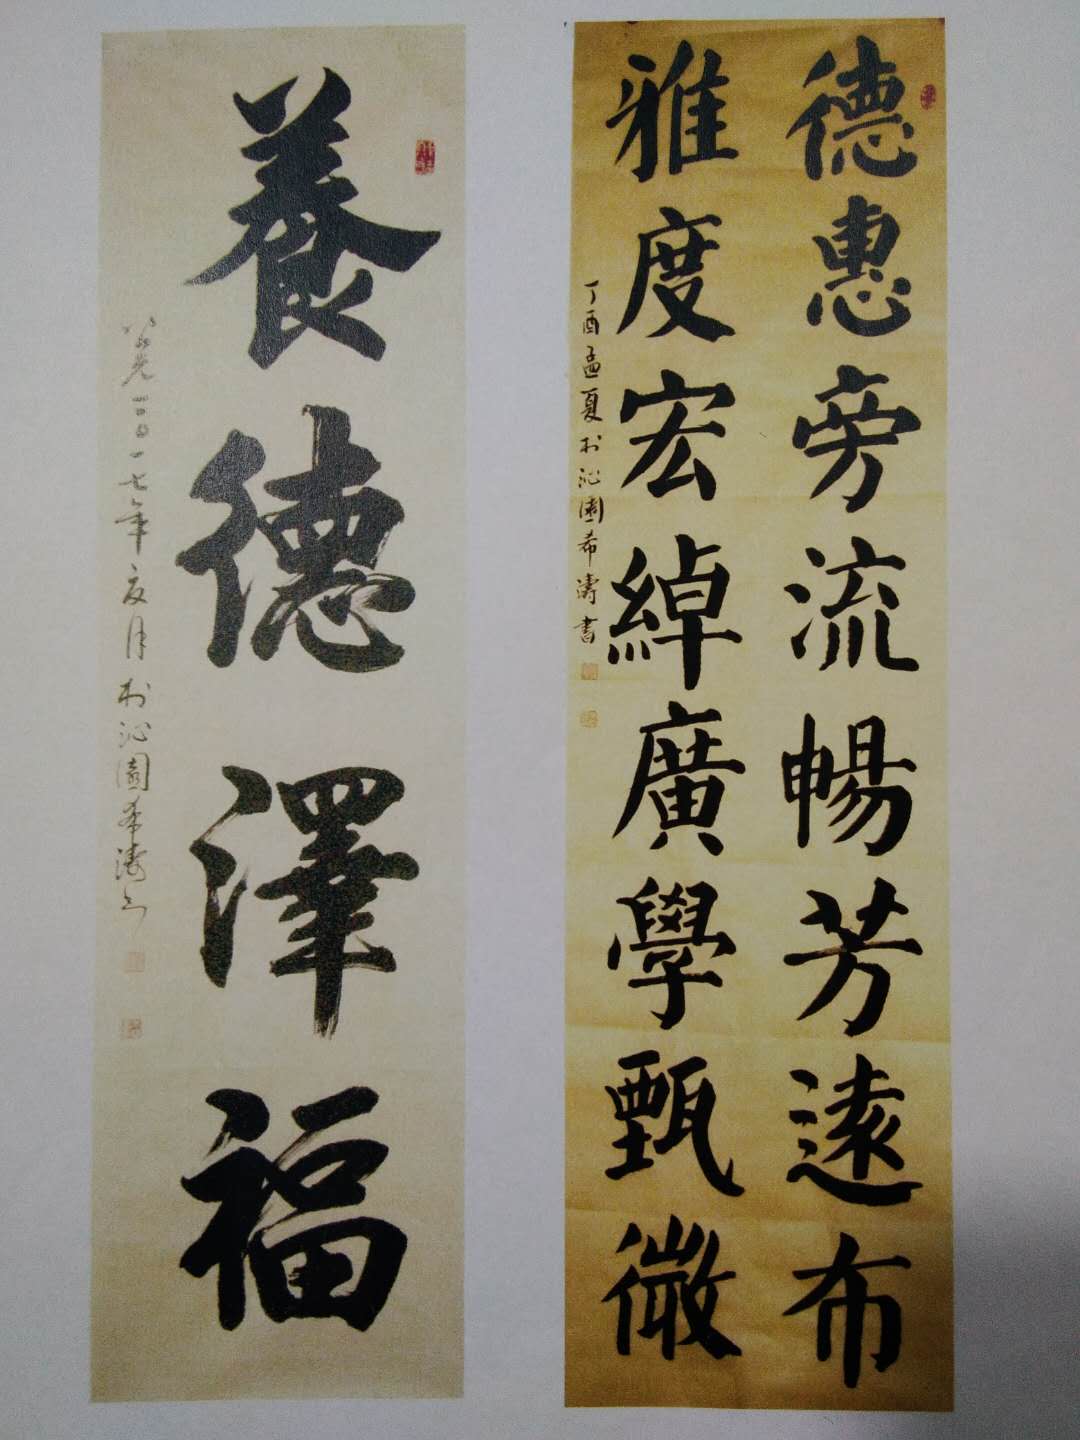 德惠旁流暢芳遠布
雅度宏綽廣學甄微
丁酉孟夏於沁園希濤書
養德澤福
二〇一七年夏月於沁園希濤